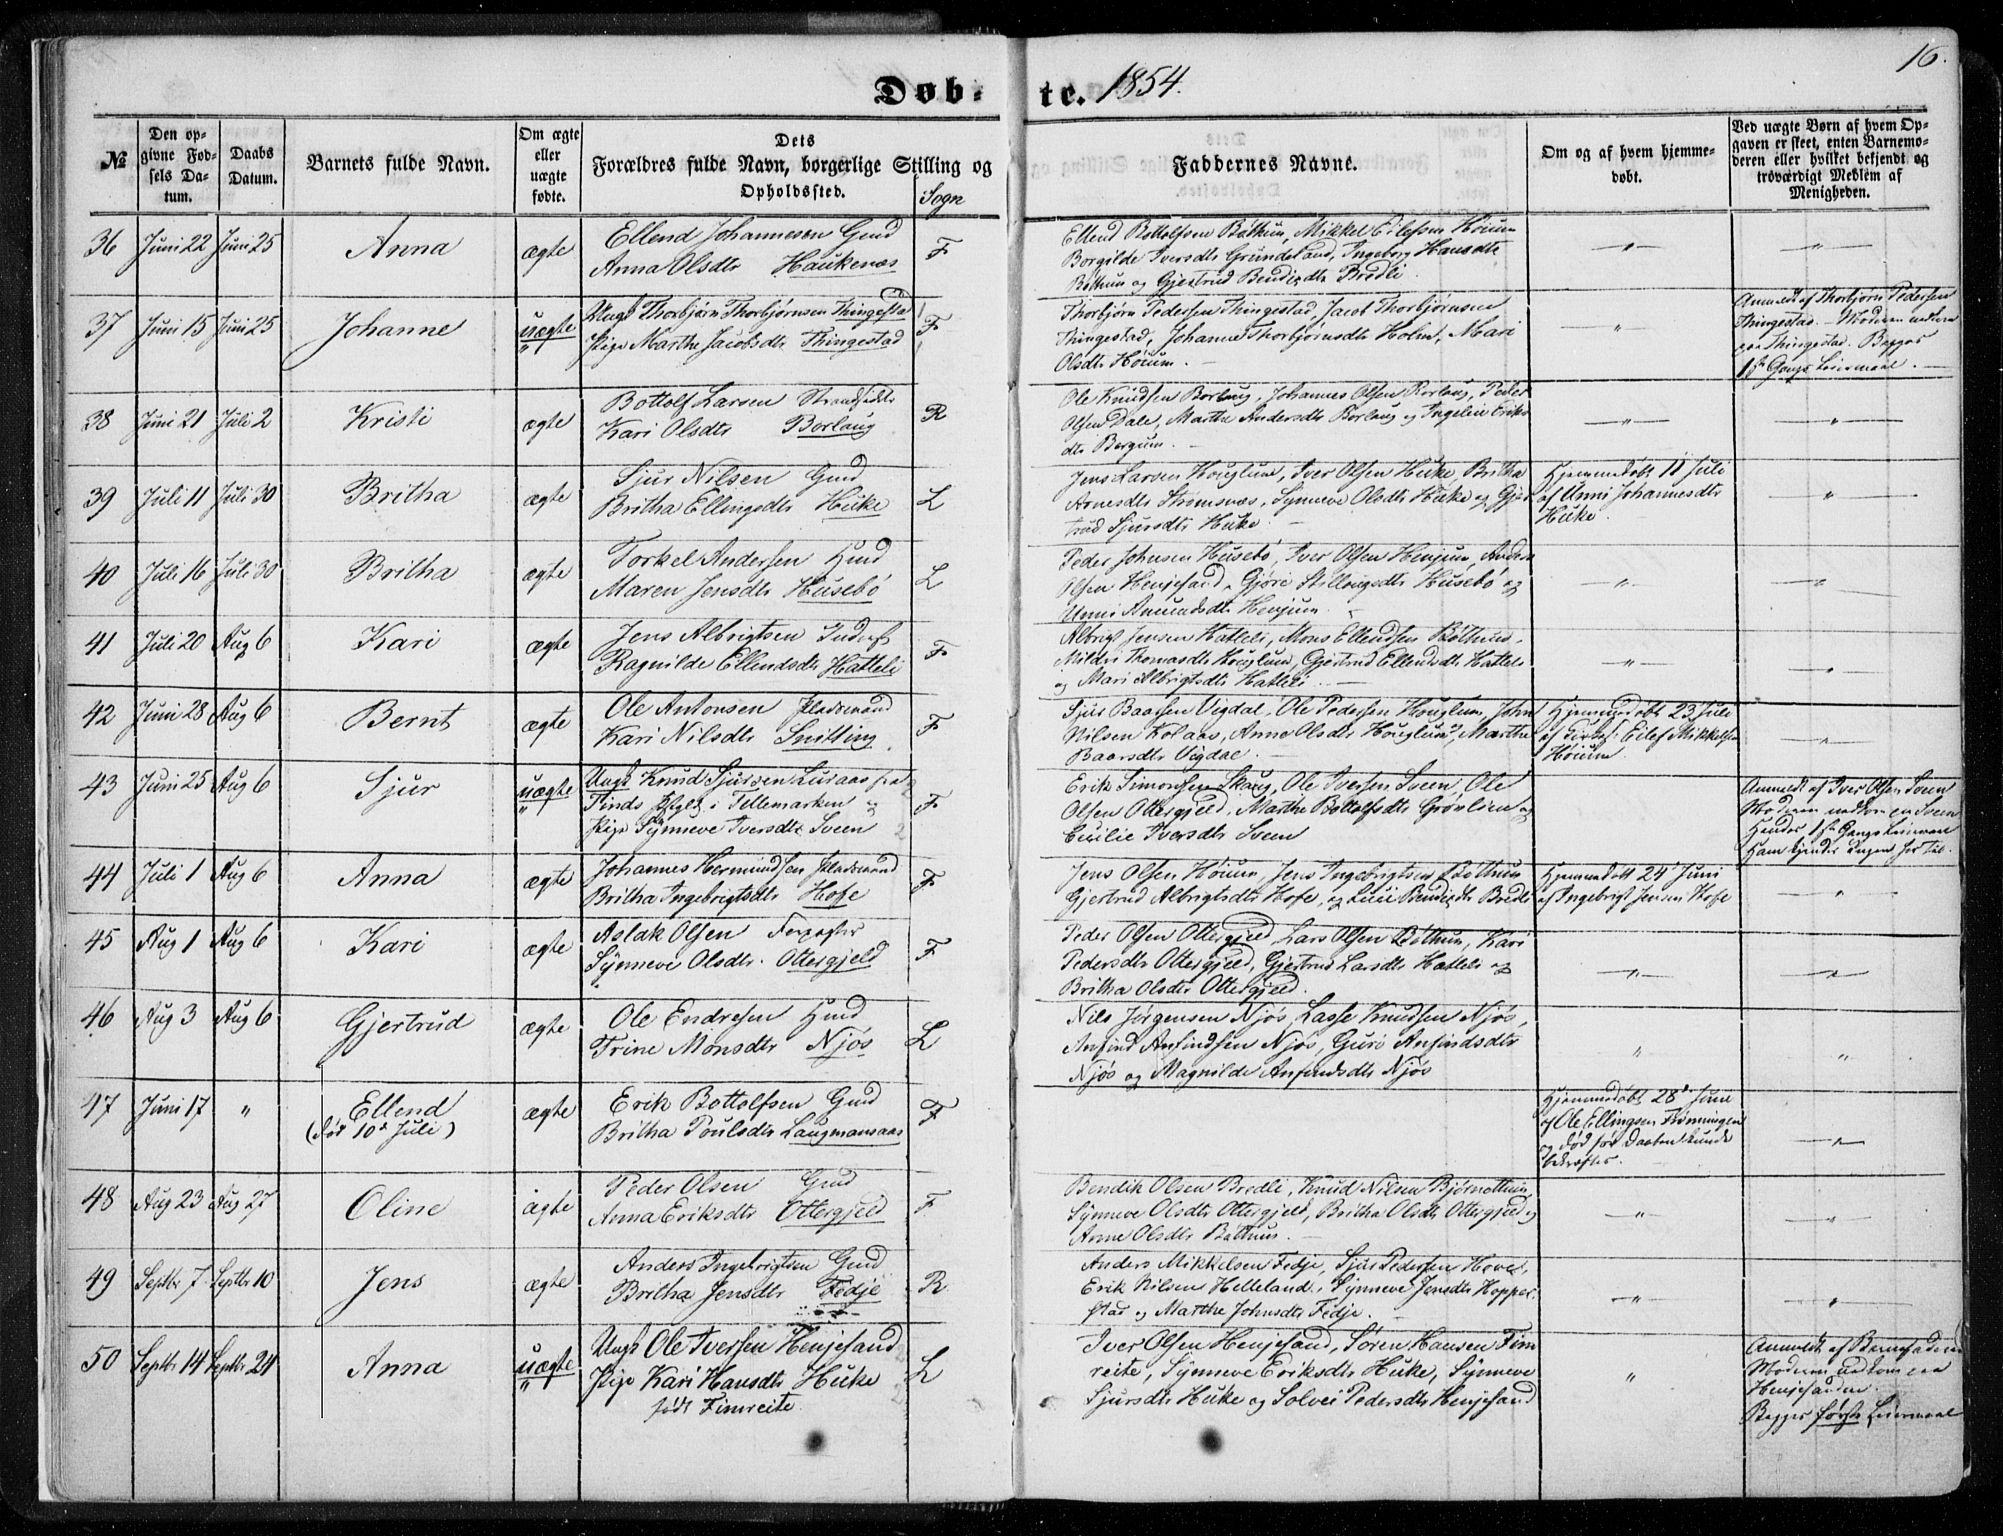 16.
Døb- te. 1854.
№
Den opgivne Fødsels Datum.
Daabs Datum.
Barnets fulde Navn.
Om ægte eller uægte fødte.
Dets Forældres fulde Navn, borgerlige Stilling og Opholdssted.
Sogn
Faddernes Navne.
Om og af hvem hjemmedøbt.
Ved uægte Børn af hvem Opgaven er skeet, enten Barnemoderen eller hvilket bekjendt og troværdigt Medlem af Menigheden.
36 Juni 22 Juni 25 Anna ægte
Ellend Johannesen Gmd
Anna Olsdtr Haukenæs F
Ellend Bottolfsen Bøthun, Mikkel Eilefsen Høium
Borgilde Iversdtr Grindeland, Ingeborg Hansdtr
Bøthun og Gjertrud Bendixdtr Bredli.
37 Juni 15 Juni 25 Johanne uægte
Ungk Thorbjørn Thorbjørnsen Thingestad
Pige Marthe Jacobsdtr Thingestad F
Thorbjørn Pedersen Thingestad, Jacob Thorbjørnsen
Thingestad, Johanne Thorbjørnsdtr Holm, Mari
Olsdtr Høium.
Anmeldt af Thorbjørn Pedersen
Thingestad. Moderen
paa Thingestad. Begges
1ste Gangs Leiermaal.
38 Juni 21 Juli 2 Kristi ægte
Bottolf Larsen Strandsidder
Kari Olsdtr Borlaug R
Ole Knudsen Borlaug, Johannes Olsen Borlaug, Peder
Olsen Dale, Martha Andersdtr Borlaug og Ingelev Eriks
dtr Bergum.
39 Juli 11 Juli 30 Britha ægte
Sjur Nilsen Gmd
Britha Ellingsdtr Huke L
Jens Larsen Houglum, Iver Olsen Huke, Britha
Arnesdtr Strømsnæs, Synneve Olsdtr Huke og Gjer
trud Sjursdtr Huke.
Hjemmedøbt 11 Juli
af Unni Johannesdtr
Huke.
40 Juli 16 Juli 30 Britha ægte
Torkel Andersen Hmd
Maren Jensdtr Husebø L
Peder Johnsen Husebø, Iver Olsen Henjum, Anders
Olsen Henjesand, Gjøri Stillingsdtr Husebø og
Unni Amundsdtr Henjum.
41 Juli 20 Aug 6 Kari ægte
Jens Albrigtsen Inderst
Ragnilde Ellendsdtr Hatleli F
Albrigt Jensen Hatleli, Mons Ellendsen Bøthun,
Mildri Thomasdtr Houglum, Gjertrud Ellendsdtr Hatleli
og Mari Albrigtsdtr Hatleli.
42 Juni 28 Aug 6 Bernt ægte
Ole Antonsen Pladsmand
Kari Nilsdtr Snitting F
Sjur Baarsen Vigdal, Ole Pedersen Houglum, John
Nilsen Kolaas, Anne Olsdtr Houglum, og Marthe
Baarsdtr Vigdal.
Hjemmedøbt 23 Juli
af Eilef Mikkelsen
Høium
43 Juni 25 Aug 6 Sjur uægte
Ungk Knud Sjursen Luraas fra
Tinds Pstgld i Tellemarken og
Pige Synneve Iversdtr Sveen F
Erik Simonsen Skaug, Ole Iversen Sveen, Ole
Olsen Ottergjeld, Marthe Bottolfsdtr Grønlien og
Cecilie Iversdtr Sveen
Anmeldt af Iver Olsen Sveen
Moderen Sveen
Hendes 1ste Gangs Leiermaal
Ham kjender Ingen her til.
44 Juli 1 Aug 6 Anna ægte
Johannes Hermundsen Pladsmand
Britha Ingebrigtsdtr Hofe F
Jens Olsen Høium, Jens Ingebrigtsen Bøthun
Gjertrud Albrigtsdtr Hofe, og Bendixdtr Bredli
Hjemmedøbt 24 Juni
af Ingebrigt Jensen Hofe
45 Aug 1 Aug 6 Kari ægte
Aslak Olsen Forpagter
Synneve Olsdtr. Ottergjeld F
Peder Olsen Ottergjeld, Lars Olsen Bøthun, Kari
Pedersdtr Ottergjeld, Gjertrud Larsdtr Hatleli og
Britha Olsdtr Ottergjeld.
46 Aug 3 Aug 6 Gjertrud ægte
Ole Endresen Hmd
Trine Monsdtr Njøs L
Nils Jørgensen Njøs, Lasse Knudsen Njøs,
Anfind Anfindsen Njøs, Guri Anfindsdtr
Njøs og Magnilde Anfindsdtr Njøs
47 Juni 17 " Ellend
(død 10de Juli) ægte
Erik Bottolfsen Gmd
Britha Poulsdtr Laugmansaas F
Hjemmedøbt 28de Juni
af Ole Ellingsen Frønningen
og død før Daaben kunde
bekræftes.
48 Aug 23 Aug 27 Oline ægte
Peder Olsen Gmd
Anna Eriksdtr Ottergjeld F
Bendik Olsen Bredli, Knud Nilsen Bjørnethun
Synneve Olsdtr Ottergjeld, Britha Olsdtr Ottergjeld og
Anne Olsdtr Bøthun.
49 Septbr 7 Septbr 10 Jens ægte
Anders Ingebrigtsen Gmd
Britha Jensdtr Fedje R
Anders Mikkelsen Fedje, Sjur Pedersen Hove,
Erik Nilsen Helleland, Synneve Jensdtr Hopper
stad og Marthe Johnsdtr Fedje.
50 Septbr 14 Septbr 24 Anna uægte
Ungk Ole Iversen Henjesand
Pige Kari Hansdtr Huke
født Fimreite. L
Iver Olsen Henjesand, Søren Hansen Fim
reite, Synneve Eriksdtr Huke, Synneve
Sjursdtr Huke og Solvei Pedersdtr Henjesand
Anmeldt af Barnefaderen
Moderen paa
Henjesanden.
Begges første Leiermaal